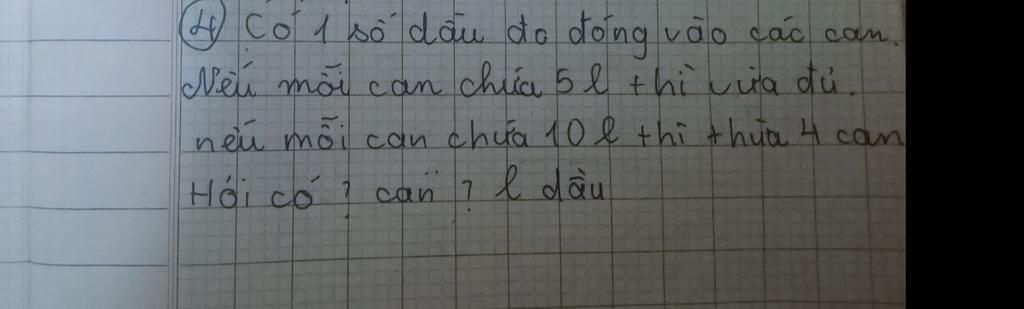 ④ Có 1 số dầu đo đóng vào các can.
Nếu mỗi can chứa 5l thì vừa đủ.
nếu mỗi can chứa 10l thì thừa 4 can
Hỏi có ? can ? l dầu